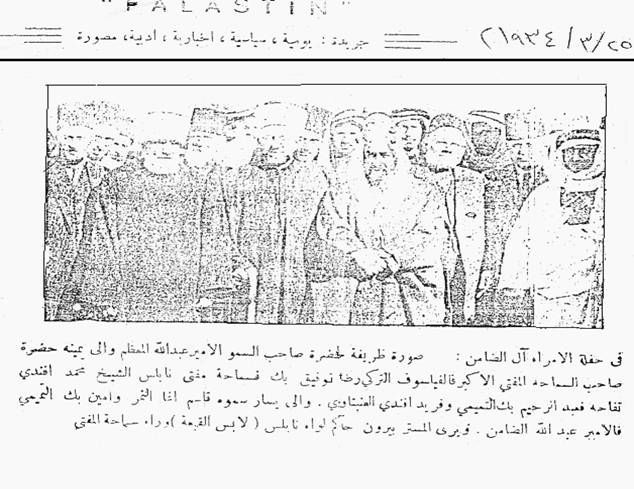 "PALASTIN"
جريدة : يومية ، سياسية ، اخبارية ، ادبية ، مصورة
٢٥/٣/١٩٣٤م
فى حفلة الامراء آل الضامن : صورة ظريفة لحضرة صاحب السمو الامير عبدالله المعظم والى يمينه حضرة
صاحب السماحه المفتي الاكبر فالفياسوف التركي رضا توفيق بك فسماحة مفتى نابلس الشيخ محمد افندي
تفاحه فعبد الرحيم بك التميمي وفريد افندي العنبتاوي . والى يسار سموه قاسم اغا النمر وامين بك التميمي
فالامير عبد الله الضامن . ويرى المستر بيرون حاكم لواء نابلس ( لابس القبعة ) وراء سماحة المفتى